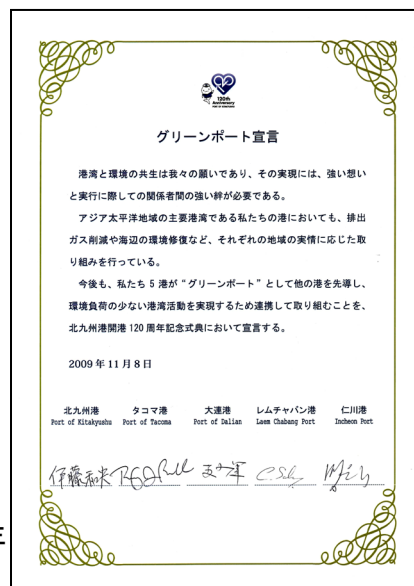 120th
Anniversary
PORT OF KITAKYUSHU
グリーンポート宣言
港湾と環境の共生は我々の願いであり、その実現には、強い想い
と実行に際しての関係者間の強い絆が必要である。
アジア太平洋地域の主要港湾である私たちの港においても、排出
ガス削減や海辺の環境修復など、それぞれの地域の実情に応じた取
り組みを行っている。
今後も、私たち 5 港が“グリーンポート”として他の港を先導し、
環境負荷の少ない港湾活動を実現するため連携して取り組むことを、
北九州港開港 120 周年記念式典において宣言する。
2009 年 11 月 8 日
北九州港 タコマ港 大連港 レムチャバン港 仁川港
Port of Kitakyushu Port of Tacoma Port of Dalian Laem Chabang Port Incheon Port
伊藤